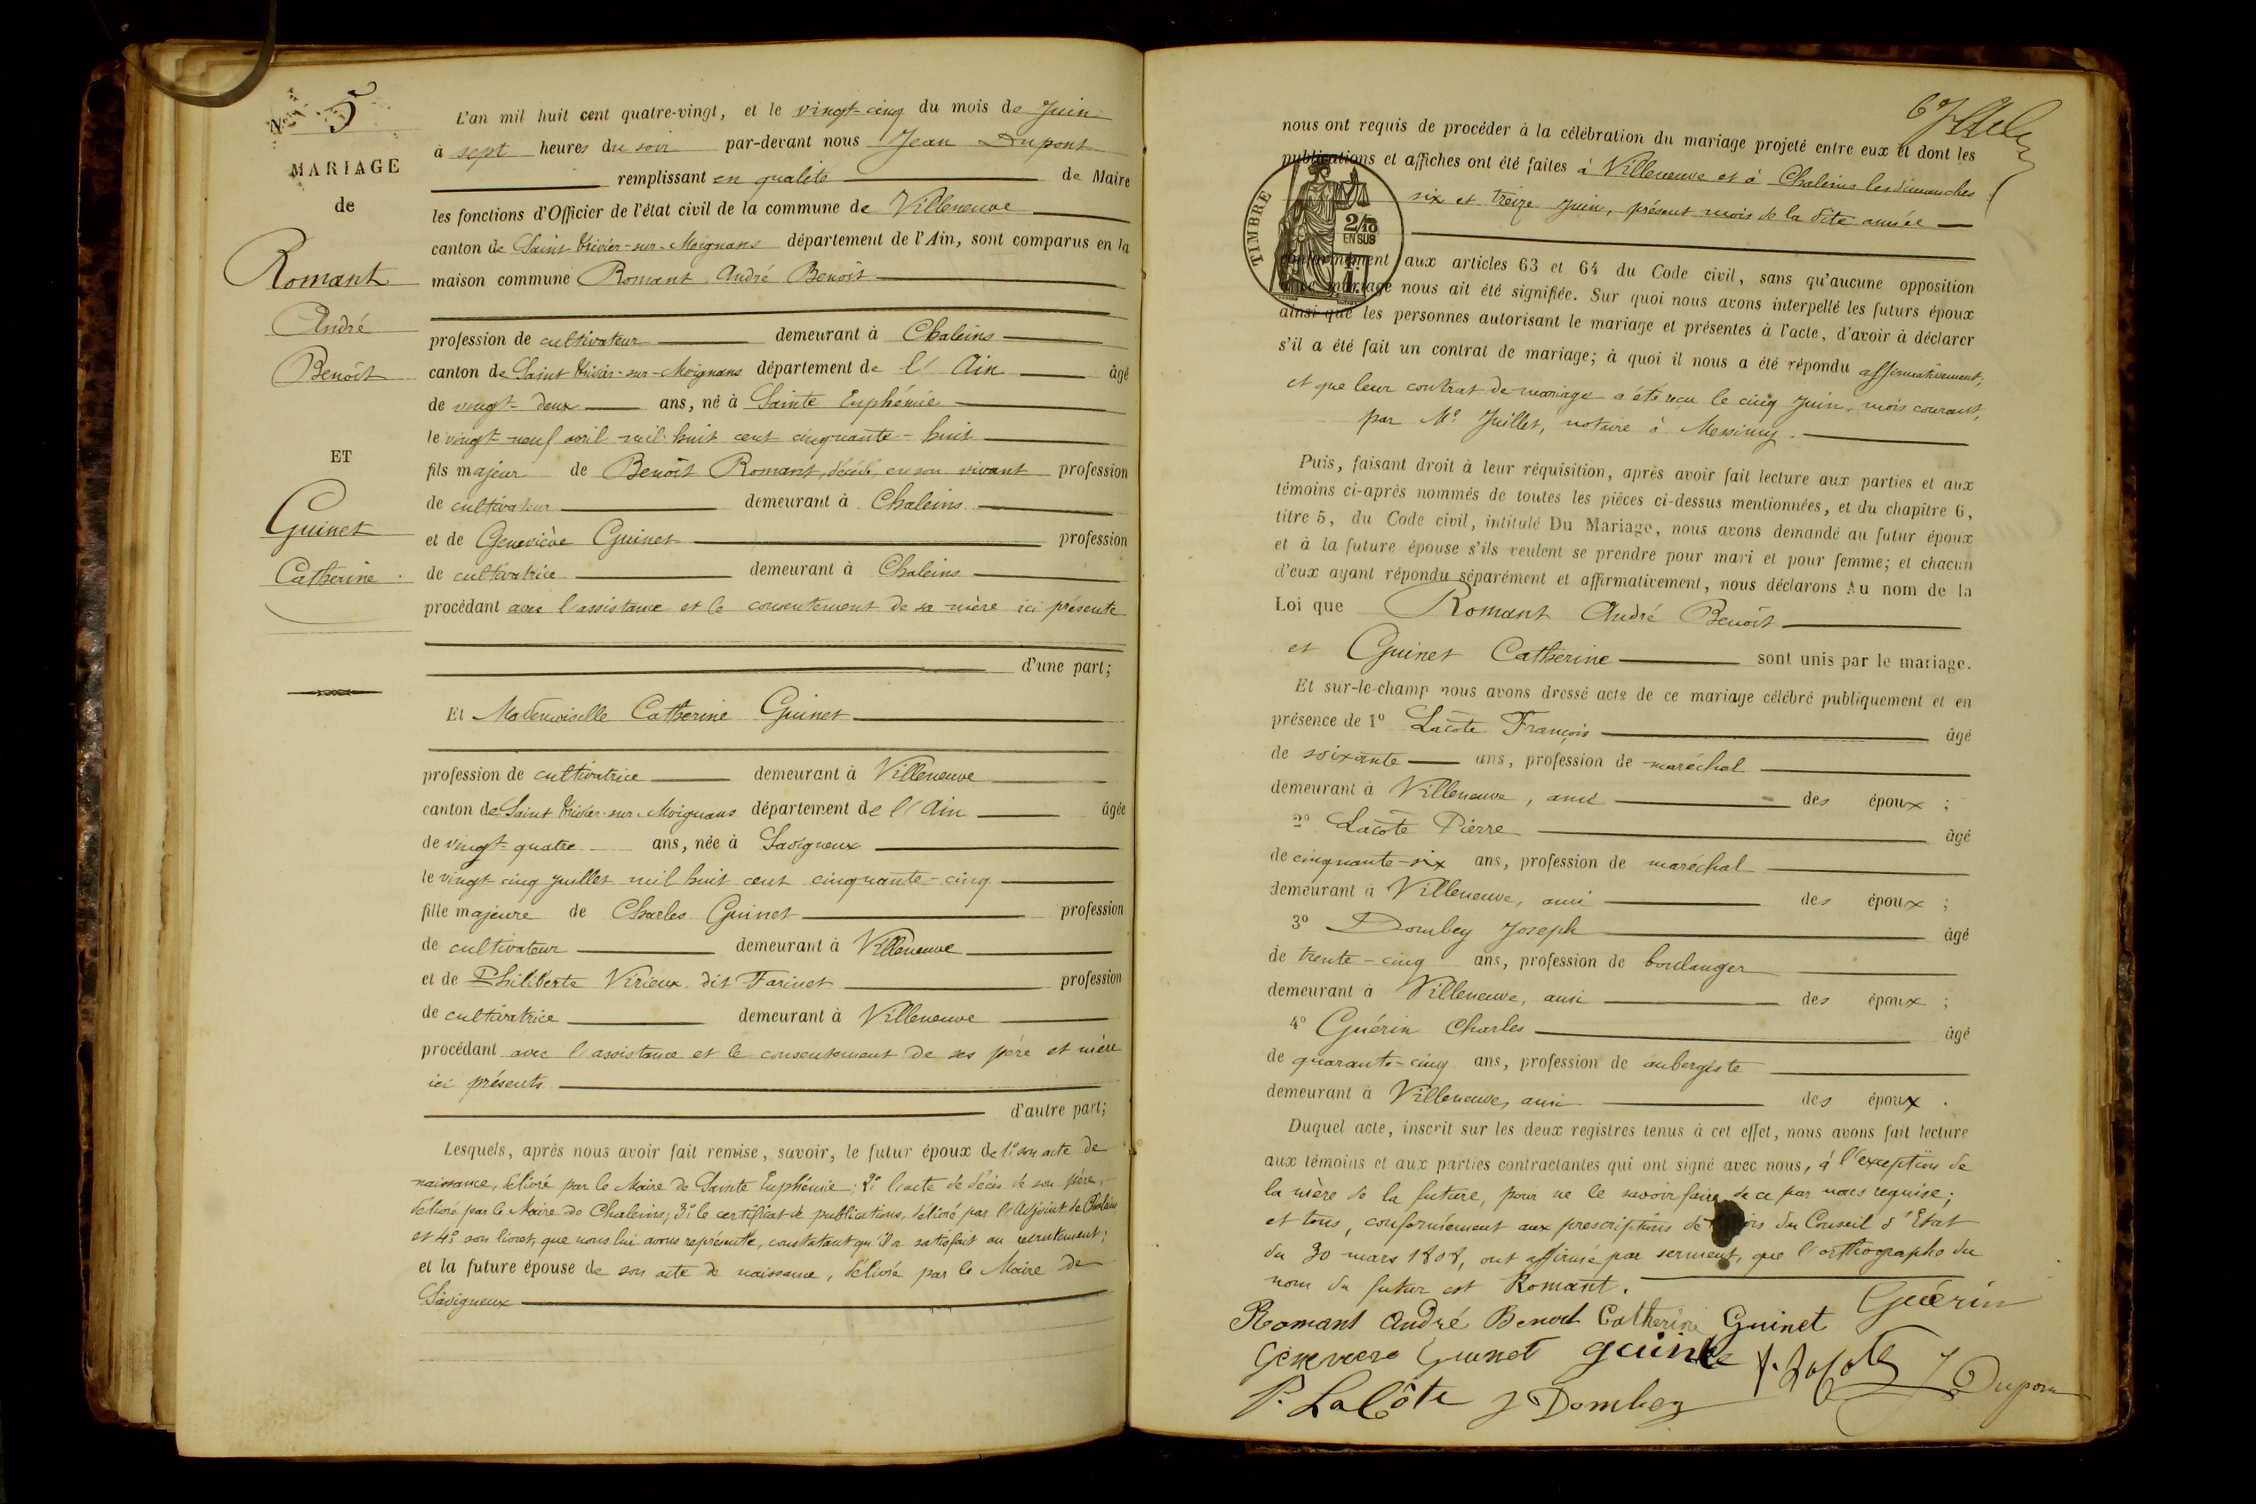 N° 5
MARIAGE
de
Romant
André
Benoît
ET
Guinet
Catherine
L'an mil huit cent quatre-vingt, et le vingt-cinq du mois de Juin
à sept heures du soir par-devant nous Jean Dupont
remplissant en qualité de Maire
les fonctions d'Officier de l'état civil de la commune de Villeneuve
canton de Saint Trivier-sur-Moignans département de l'Ain, sont comparus en la
maison commune Romant André Benoît
profession de cultivateur demeurant à Chaleins
canton de Saint Trivier-sur-Moignans département de l'Ain âgé
de vingt-deux ans, né à Sainte Euphémie
le vingt-neuf avril mil huit cent cinquante-huit
fils majeur de Benoît Romant, décédé, en son vivant profession
de cultivateur demeurant à Chaleins
et de Geneviève Guinet profession
de cultivatrice demeurant à Chaleins
procédant avec l'assistance et le consentement de sa mère ici présente
d'une part;
Et Mademoiselle Catherine Guinet
profession de cultivatrice demeurant à Villeneuve
canton de Saint Trivier-sur-Moignans département de l'Ain âgée
de vingt-quatre ans, née à Savigneux
le vingt cinq juillet mil huit cent cinquante-cinq
fille majeure de Charles Guinet profession
de cultivateur demeurant à Villeneuve
et de Philiberte Virieux dit Farinet profession
de cultivatrice demeurant à Villeneuve
procédant avec l'assistance et le consentement de ses père et mère
ici présents
d'autre part;
Lesquels, après nous avoir fait remise, savoir, le futur époux de 1° son acte de
naissance, délivré par le Maire de Sainte Euphémie; 2° l'acte de décès de son père,
délivré par le Maire de Chaleins; 3° le certificat de publications, délivré par l'Adjoint de Chaleins
et 4° son livret, que nous lui avons représenté, constatant qu'il a satisfait au recrutement;
et la future épouse de son acte de naissance, délivré par le Maire de
Savigneux
nous ont requis de procéder à la célébration du mariage projeté entre eux et dont les
publications et affiches ont été faites à Villeneuve et à Chaleins les dimanches
six et treize Juin, présent mois de la dite année
TIMBRE
2/10
EN SUS
conformément aux articles 63 et 64 du Code civil, sans qu'aucune opposition
mariage nous ait été signifiée. Sur quoi nous avons interpellé les futurs époux
ainsi que les personnes autorisant le mariage et présentes à l'acte, d'avoir à déclarer
s'il a été fait un contrat de mariage; à quoi il nous a été répondu affirmativement,
et que leur contrat de mariage a été reçu le cinq Juin, mois courant,
par Me Juillet, notaire à Messimy.
Puis, faisant droit à leur réquisition, après avoir fait lecture aux parties et aux
témoins ci-après nommés de toutes les pièces ci-dessus mentionnées, et du chapitre 6,
titre 5, du Code civil, intitulé Du Mariage, nous avons demandé au futur époux
et à la future épouse s'ils veulent se prendre pour mari et pour femme; et chacun
d'eux ayant répondu séparément et affirmativement, nous déclarons Au nom de la
Loi que Romant André Benoît
et Guinet Catherine sont unis par le mariage.
Et sur-le-champ nous avons dressé acte de ce mariage célébré publiquement et en
présence de 1° Lacôte François âgé
de soixante ans, profession de maréchal
demeurant à Villeneuve, ami des époux ;
2° Lacôte Pierre âgé
de cinquante-six ans, profession de maréchal
demeurant à Villeneuve, ami des époux ;
3° Dombey Joseph âgé
de trente-cinq ans, profession de boulanger
demeurant à Villeneuve, ami des époux ;
4° Guérin Charles âgé
de quarante-cinq ans, profession de aubergiste
demeurant à Villeneuve, ami des époux .
Duquel acte, inscrit sur les deux registres tenus à cet effet, nous avons fait lecture
aux témoins et aux parties contractantes qui ont signé avec nous, à l'exception de
la mère de la future, pour ne le savoir faire, de ce par nous requise;
et tous, conformément aux prescriptions de du Conseil d'Etat
du 30 mars 1808, ont affirmé par serment, que l'orthographe du
nom du futur est Romant.
Guérin
Romant André Benoit Catherine Guinet
Genevieve Guinet guinet
P. LaCôte J Dombey J Dupont